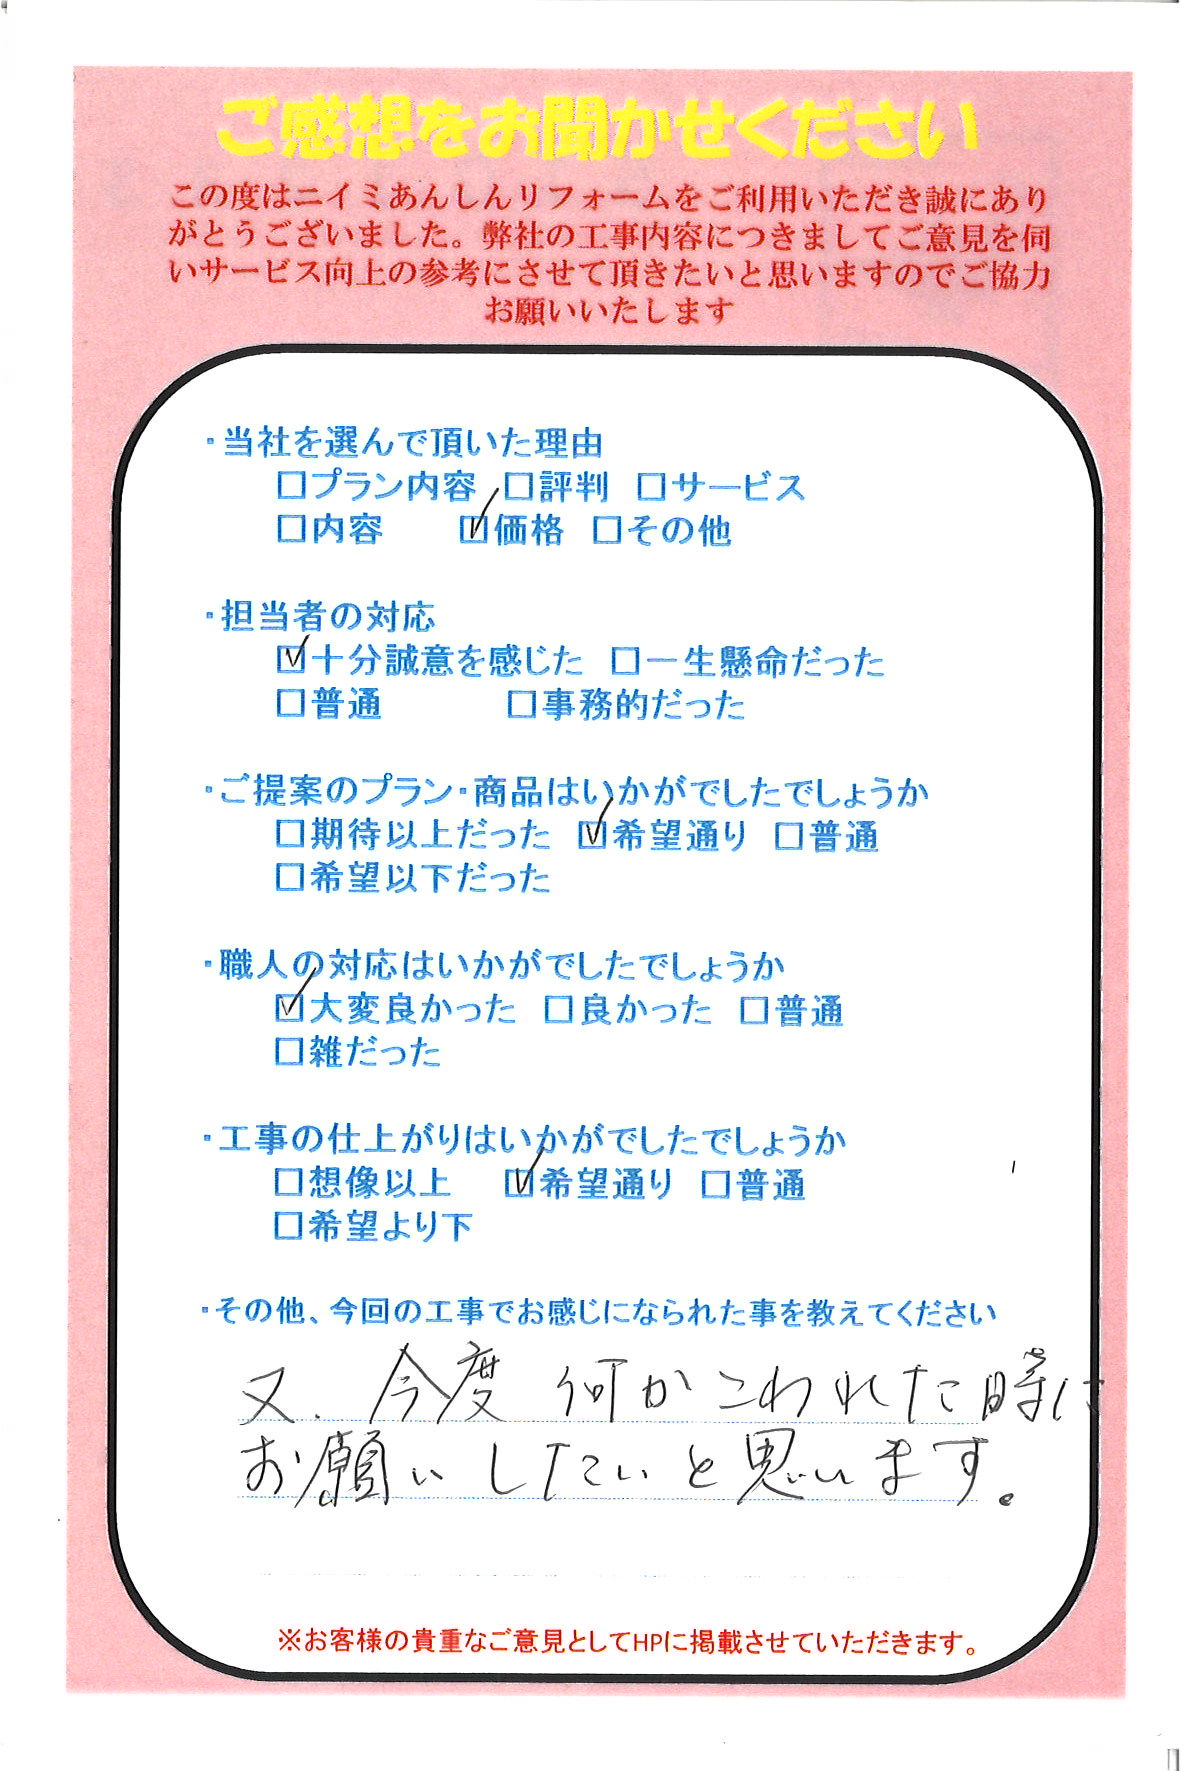 ご感想をお聞かせください
この度はニイミあんしんリフォームをご利用いただき誠にあり
がとうございました。弊社の工事内容につきましてご意見を伺
いサービス向上の参考にさせて頂きたいと思いますのでご協力
お願いいたします
・当社を選んで頂いた理由
□プラン内容 □評判 □サービス
□内容 ☑価格 □その他
・担当者の対応
☑十分誠意を感じた □一生懸命だった
□普通 □事務的だった
・ご提案のプラン・商品はいかがでしたでしょうか
□期待以上だった ☑希望通り □普通
□希望以下だった
・職人の対応はいかがでしたでしょうか
☑大変良かった □良かった □普通
□雑だった
・工事の仕上がりはいかがでしたでしょうか
□想像以上 ☑希望通り □普通
□希望より下
・その他、今回の工事でお感じになられた事を教えてください
又、今度 何かこわれた時に
お願いしたいと思います。
※お客様の貴重なご意見としてHPに掲載させていただきます。